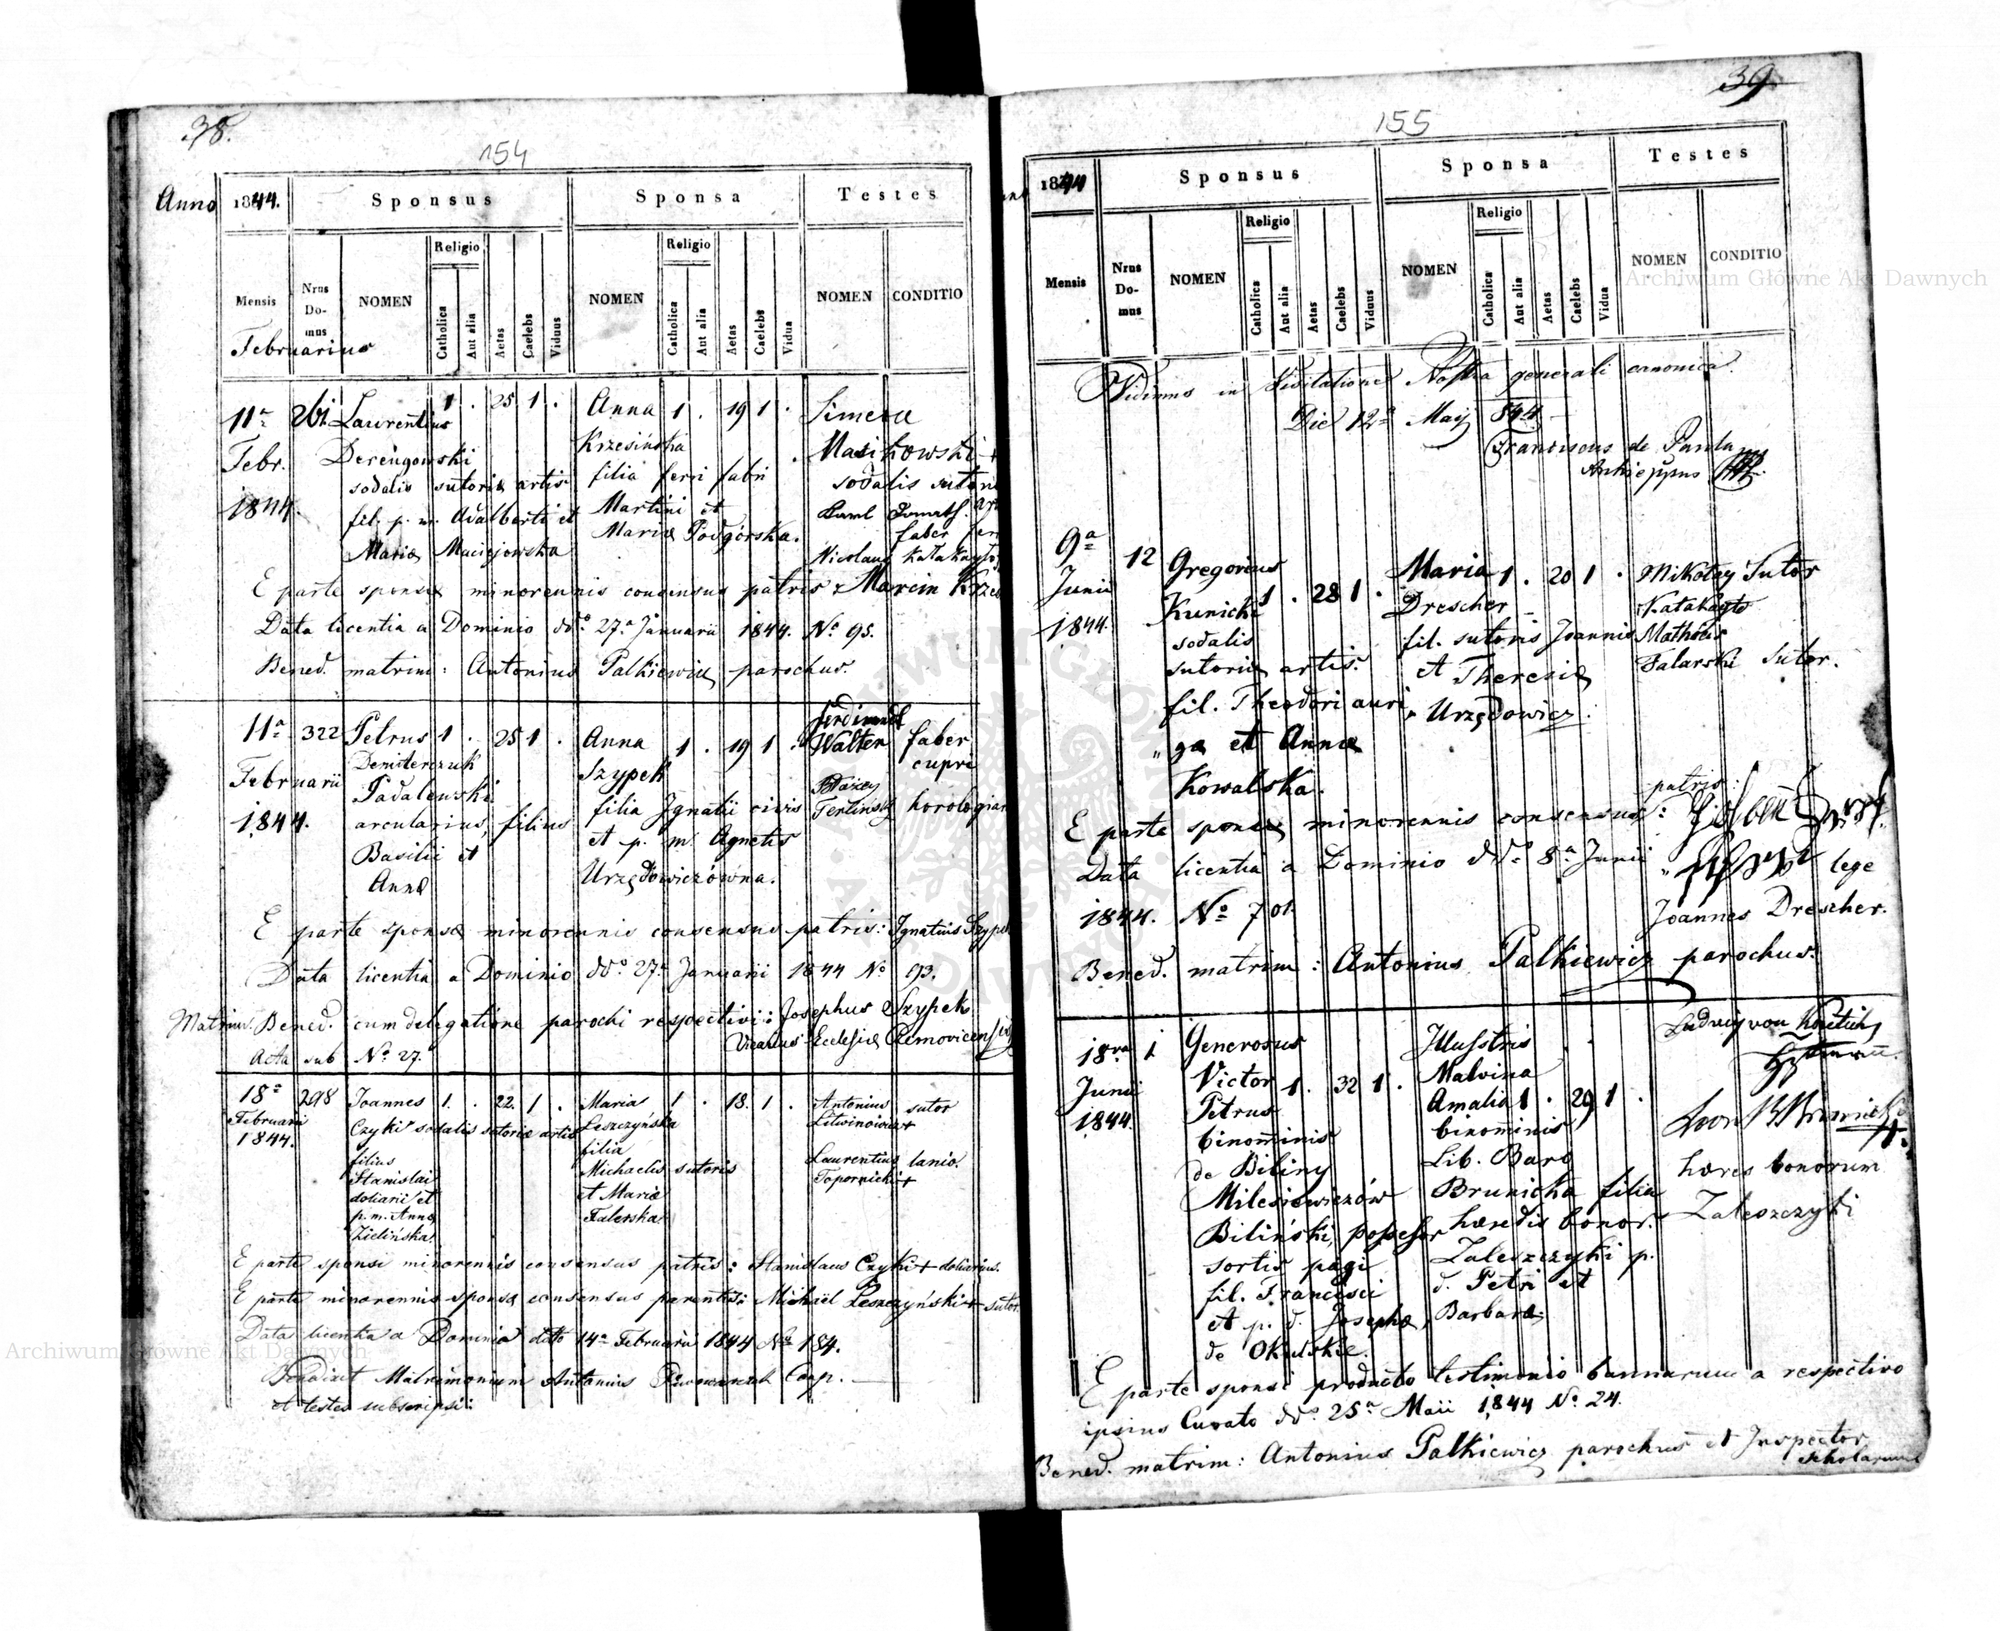 38.
154
Anno 1844.
Sponsus
Sponsa
Testes
Mensis
Nrus Domus
NOMEN
Religio
Catholica
Aut alia
Aetas
Caelebs
Viduus
NOMEN
Religio
Catholica
Aut alia
Aetas
Caelebs
Vidua
NOMEN
CONDITIO
Februarius
11a Febr. 1844.
Laurentius 1 . 25 1 .
Derengowski
sodalis sutoriæ artis
fil. p. m. Adalberti et
Mariæ Maciejowska
Anna 1 . 19 1 .
Krzesińska
filia ferri fabri
Martini et
Mariæ Podgórska.
Simeon
Masikowski +
sodalis sutoriæ
faber
Nicolaus
E parte sponsæ minorennis consensus patris Marcin
Data licentia a Dominio ddo. 27a Januarii 1844. No 95.
Bened. matrim: Antonius Palkiewicz parochus.
11a Februarii 1844.
322
Petrus 1 . 25 1 .
Demterczuk
Padalewski
arcularius, filius
Basilii et
Annæ
Anna 1 . 19 1 .
Szypek
filia Ignatii civis
et p. m. Agnetis
Urzędowiczówna.
Ferdinand
Walter faber
cupri
Błażey
horologiar
E parte sponsæ minorennis consensus patris: Ignatius Szypek
Data licentia a Dominio ddo. 27a Januarii 1844 No 93.
Matrim. Bened. cum delegatione parochi respectivi: Josephus Szypek
Vicarius Ecclesiæ
Acta sub No 27.
18a Februarii 1844.
298
Joannes 1. . 22. 1 .
Czyki sodalis sutoriæ artis
filius
Stanislai
doliarii et
p. m. Annæ
Zielińska.
Maria 1 . 18. 1 .
Leszczyńska
filia
Michaelis sutoris
et Mariæ
Falerska
Antonius sutor
Litwinowicz +
Laurentius lanio.
Topornicki +
E parte sponsi minorennis consensus patris: Stanislaus Czyki + doliarius.
E parte minorennis sponsæ consensus parentis: Michaël Leszczyński + sutor
Data licentia a Dominio ddto 14a Februarii 1844 No 184.
Benedixit Matrimonium Antonius Coop.
et testes subscripsi:
39
155
1844
Sponsus
Sponsa
Testes
Mensis
Nrus Domus
NOMEN
Religio
Catholica
Aut alia
Aetas
Caelebs
Viduus
NOMEN
Religio
Catholica
Aut alia
Aetas
Caelebs
Vidua
NOMEN
CONDITIO
Vidimus in Visitatione Nostra generali canonica.
Die 12a Maij 844
Franciscus de Paula
Archieppus
9a Junii 1844.
12
Gregorius
Kunicki 1 . 28 1 .
sodalis
sutoriæ artis.
fil. Theodori auri
gæ et Annæ
Kowalska.
Maria 1 . 20 1 .
Drescher
fil. sutoris Joannis
et Theresiæ
Urzędowicz.
Mikołay Sutor
Katakayło
Mathias
Falarski Sutor.
E parte sponsæ minorennis consensus patris:
Data licentia a Dominio ddo. 8a Junii
lege
1844. No 701.
Joannes Drescher.
Bened. matrim: Antonius Palkiewicz parochus.
18va Junii 1844
1
Generosus
Victor 1. . 32 1 .
Petrus
binominis
de Biliny
Milesiewiczów
Biliński, possessor
sortis pagi
fil. Francisci
et p. d. Josephæ
de Okulskie.
Illustris
Malvina
Amalia 1 . 29 1 .
binominis
Lib. Baro
Brunicka filia
hæredis bonor.
Zaleszczyki p.
d. Petri et
Barbaræ
Ludwig von
hæres bonorum
Zaleszczyki
E parte sponsi producto testimonio bannorum a respectivo
ipsius Curato ddo. 25a Maii 1844 No. 24.
Bened. matrim: Antonius Palkiewicz parochus et Inspector
Scholarum
Archiwum Główne Akt Dawnych
Archiwum Główne Akt Dawnych
ARCHIWUM GŁÓWNE AKT DAWNYCH